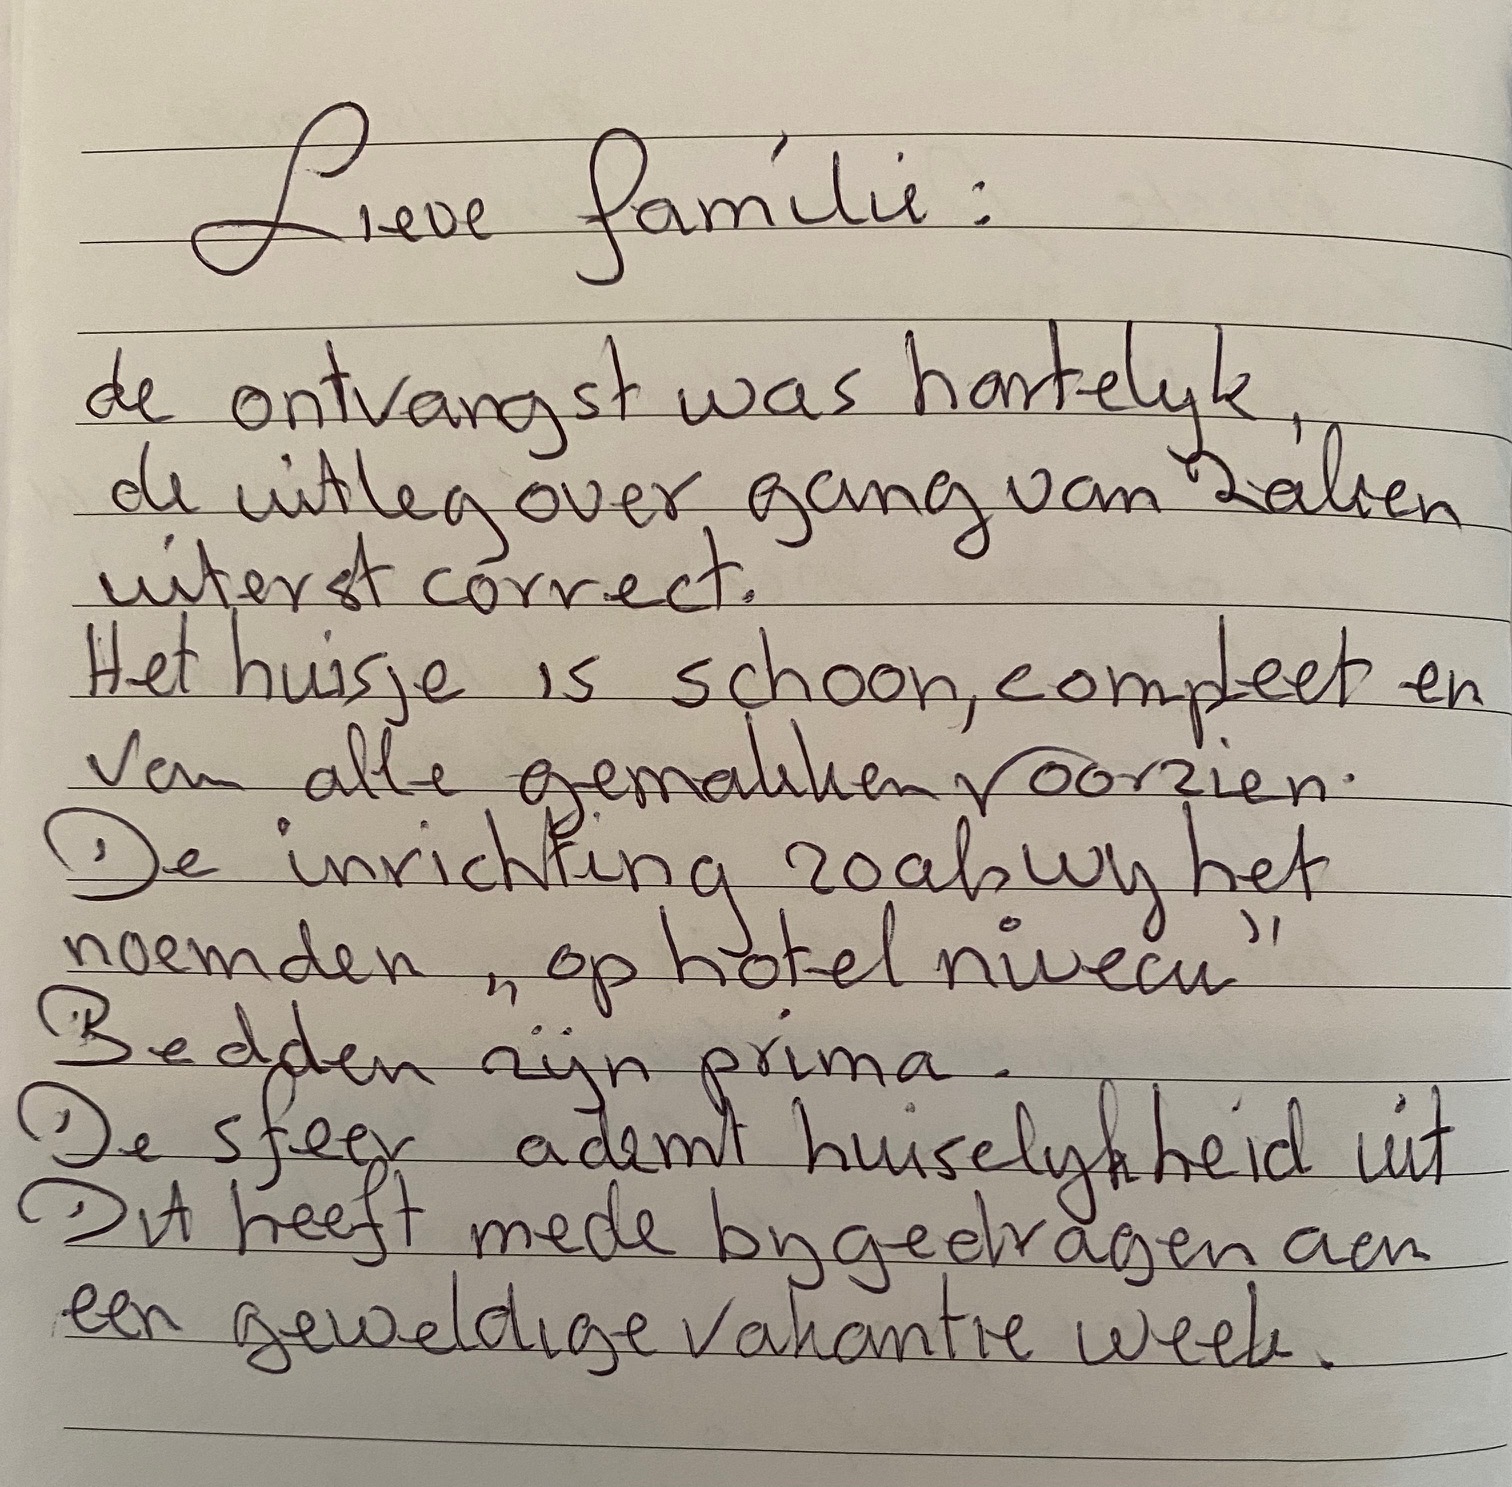 Lieve familie:
de ontvangst was hartelyk,
de uitleg over gang van zaken
uiterst correct.
Het huisje is schoon, compleet en
van alle gemakken voorzien.
De inrichting zoals wy het
noemden „op hotel niveau”
Bedden zijn prima.
De sfeer ademt huiselykheid uit
Dit heeft mede bygedragen aan
een geweldige vakantie week.